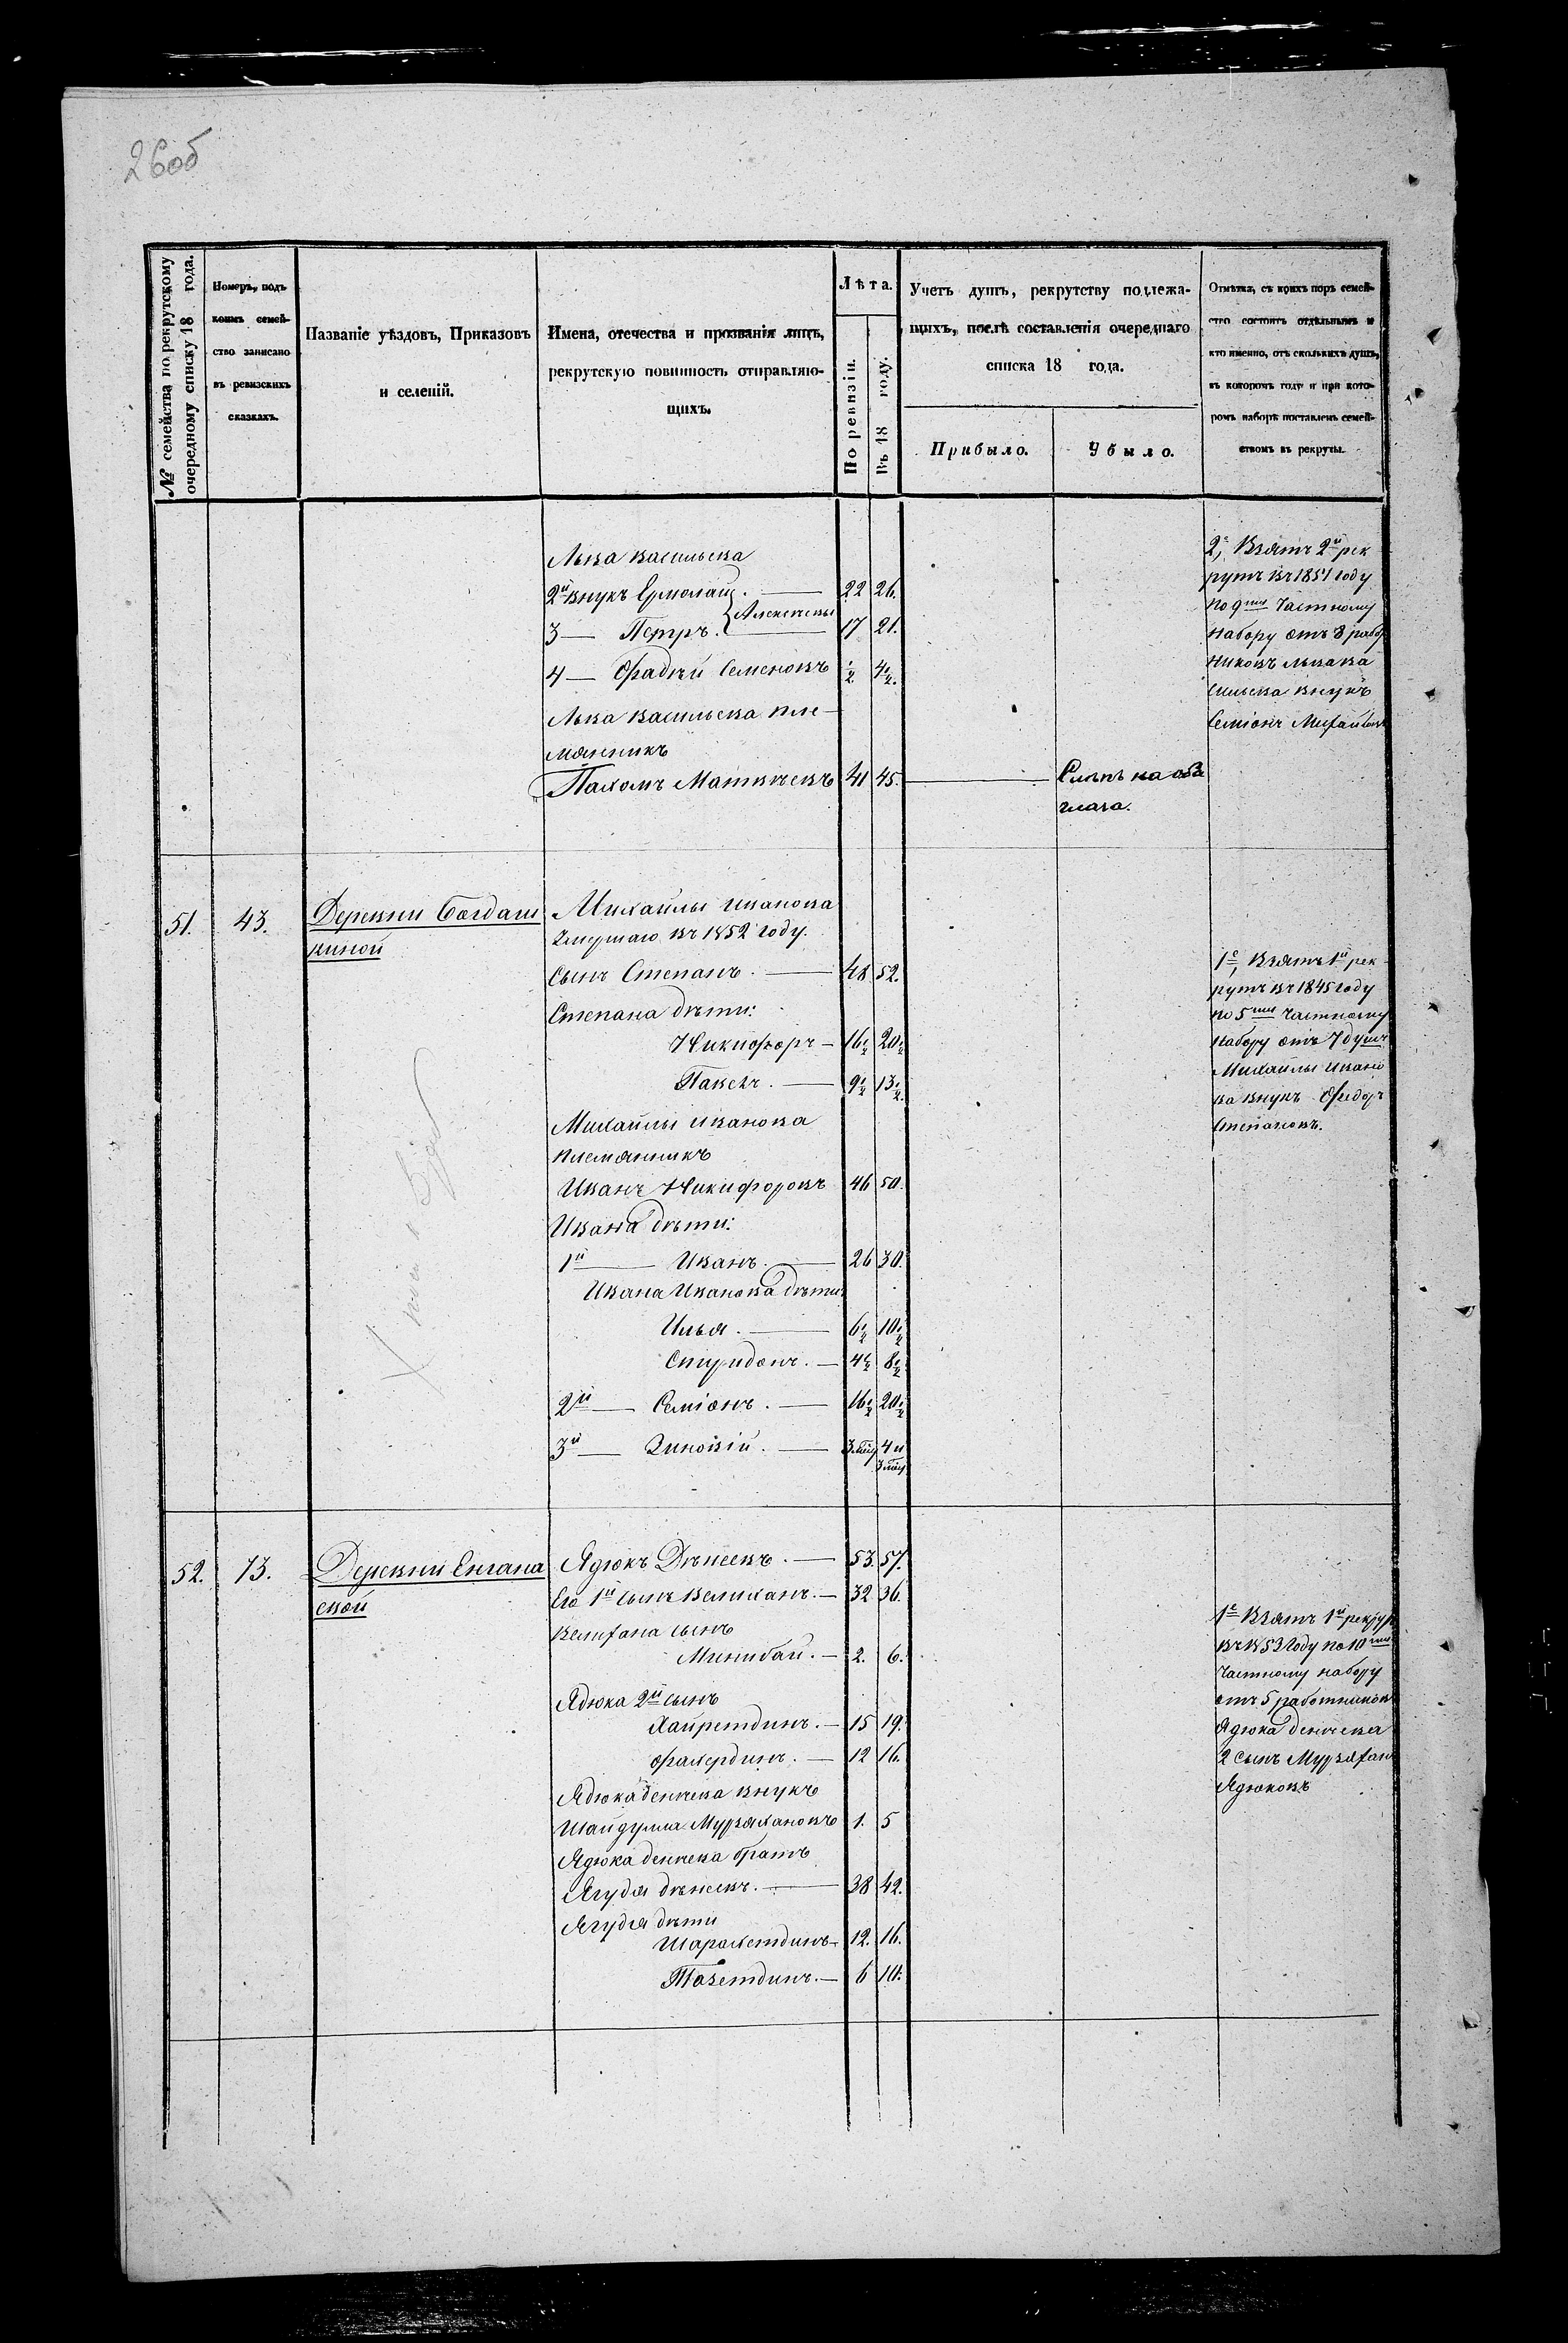 26об
№ семейства по рекрутскому
очередному списку 18 года.
Номеръ, подъ
коимъ семей-
ство записано
въ ревизскихъ
сказкахъ.
Названіе уѣздовъ, Приказовъ
и селеній.
Имена, отечества и прозванія лицъ,
рекрутскую повинность отправляю-
щихъ.
Лѣта.
По ревизіи.
Въ 18 году.
Учетъ душъ, рекрутству подлежа-
щихъ, послѣ составленія очереднаго
списка 18 года.
Прибыло.
Убыло.
Отмѣтка, съ коихъ поръ семей-
ство состоитъ отдѣльнымъ и
кто именно, отъ сколькихъ душъ,
въ которомъ году и при кото-
ромъ наборѣ поставленъ семей-
ствомъ въ рекруты.
Льва Васильева
2й внукъ Ермолай. — 22 26.
3 — Петръ. { Алексеевы 17 21.
4 — Фадѣй Семеновъ ½ 4½.
Льва Васильева пле-
мянникъ
Пахомъ Матвѣевъ 41 45. — Слѣпъ на оба
глаза.
2е, Взятъ 2й рек
рутъ въ 1851 году
по 9му частному
набору отъ 8 работ
никовъ Льва Ва
сильева внукъ
Семіонъ Михайловъ
51. 43. Деревни Богдаш
киной
Михайлы Иванова
Умершаго въ 1852 году.
сынъ Степанъ. — 48 52.
Степана дѣти:
Никифоръ — 16½ 20½
Павелъ. — 9½ 13½.
Михайлы Иванова
племянникъ
Иванъ Никифоровъ 46 50.
Ивана дѣти:
1й — Иванъ. — 26 30.
Ивана Иванова дѣти:
Илья. — 6½ 10½
Спиридонъ. — 4½ 8½
2й — Семіонъ. — 16½ 20½
3й — Зиновій. — 3 мѣсц 4 и
3 мѣсц
1е, Взятъ 1й рек-
рутъ въ 1845 году
по 5му частному
набору отъ 7 душъ
Михайлы Ивано
ва внукъ Федоръ
Степановъ.
52. 73. Деревни Енгана
евой
Ядюкъ Дѣнеевъ. — 53. 57.
Его 1й сынъ Велиханъ. — 32 36.
Велихана сынъ
Минибай. — 2. 6.
Ядюка 2й сынъ
Хайретдинъ. — 15 19.
Фахердинъ. — 12 16.
Ядюка Денеева внукъ
Шайдулла Мурзахановъ 1. 5
Ядюка Денеева братъ
Ягудя Дѣнеевъ. — 38 42.
Ягудя дѣти
Шарахетдинъ — 12. 16.
Тазетдинъ. — 6 10.
1е Взятъ 1й рекрут
въ 1853 году по 10му
частному набору
отъ 5 работников
Ядюка Денеева
2 сынъ Мурзахан
Ядюковъ